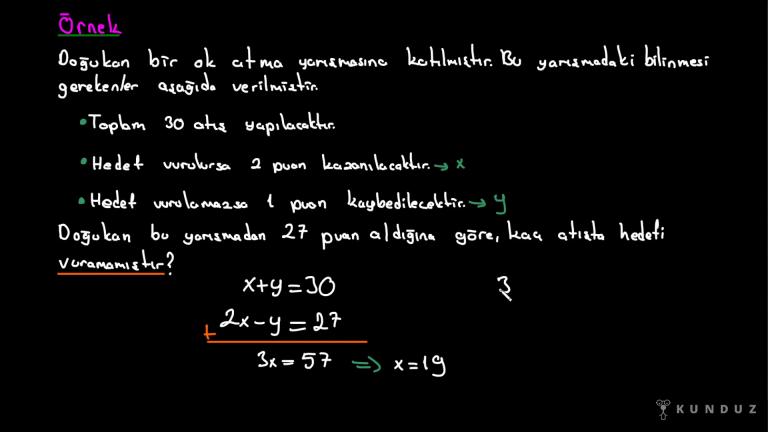 Örnek
Doğukan bir ok atma yarışmasına katılmıştır. Bu yarışmadaki bilinmesi
gerekenler aşağıda verilmiştir.
•Toplam 30 atış yapılacaktır.
•Hedef vurulursa 2 puan kazanılacaktır. → x
•Hedef vurulamazsa 1 puan kaybedilecektir. → y
Doğukan bu yarışmadan 27 puan aldığına göre, kaç atışta hedefi
vuramamıştır?
x+y=30
3
+ 2x-y=27
3x=57 => x=19
KUNDUZ